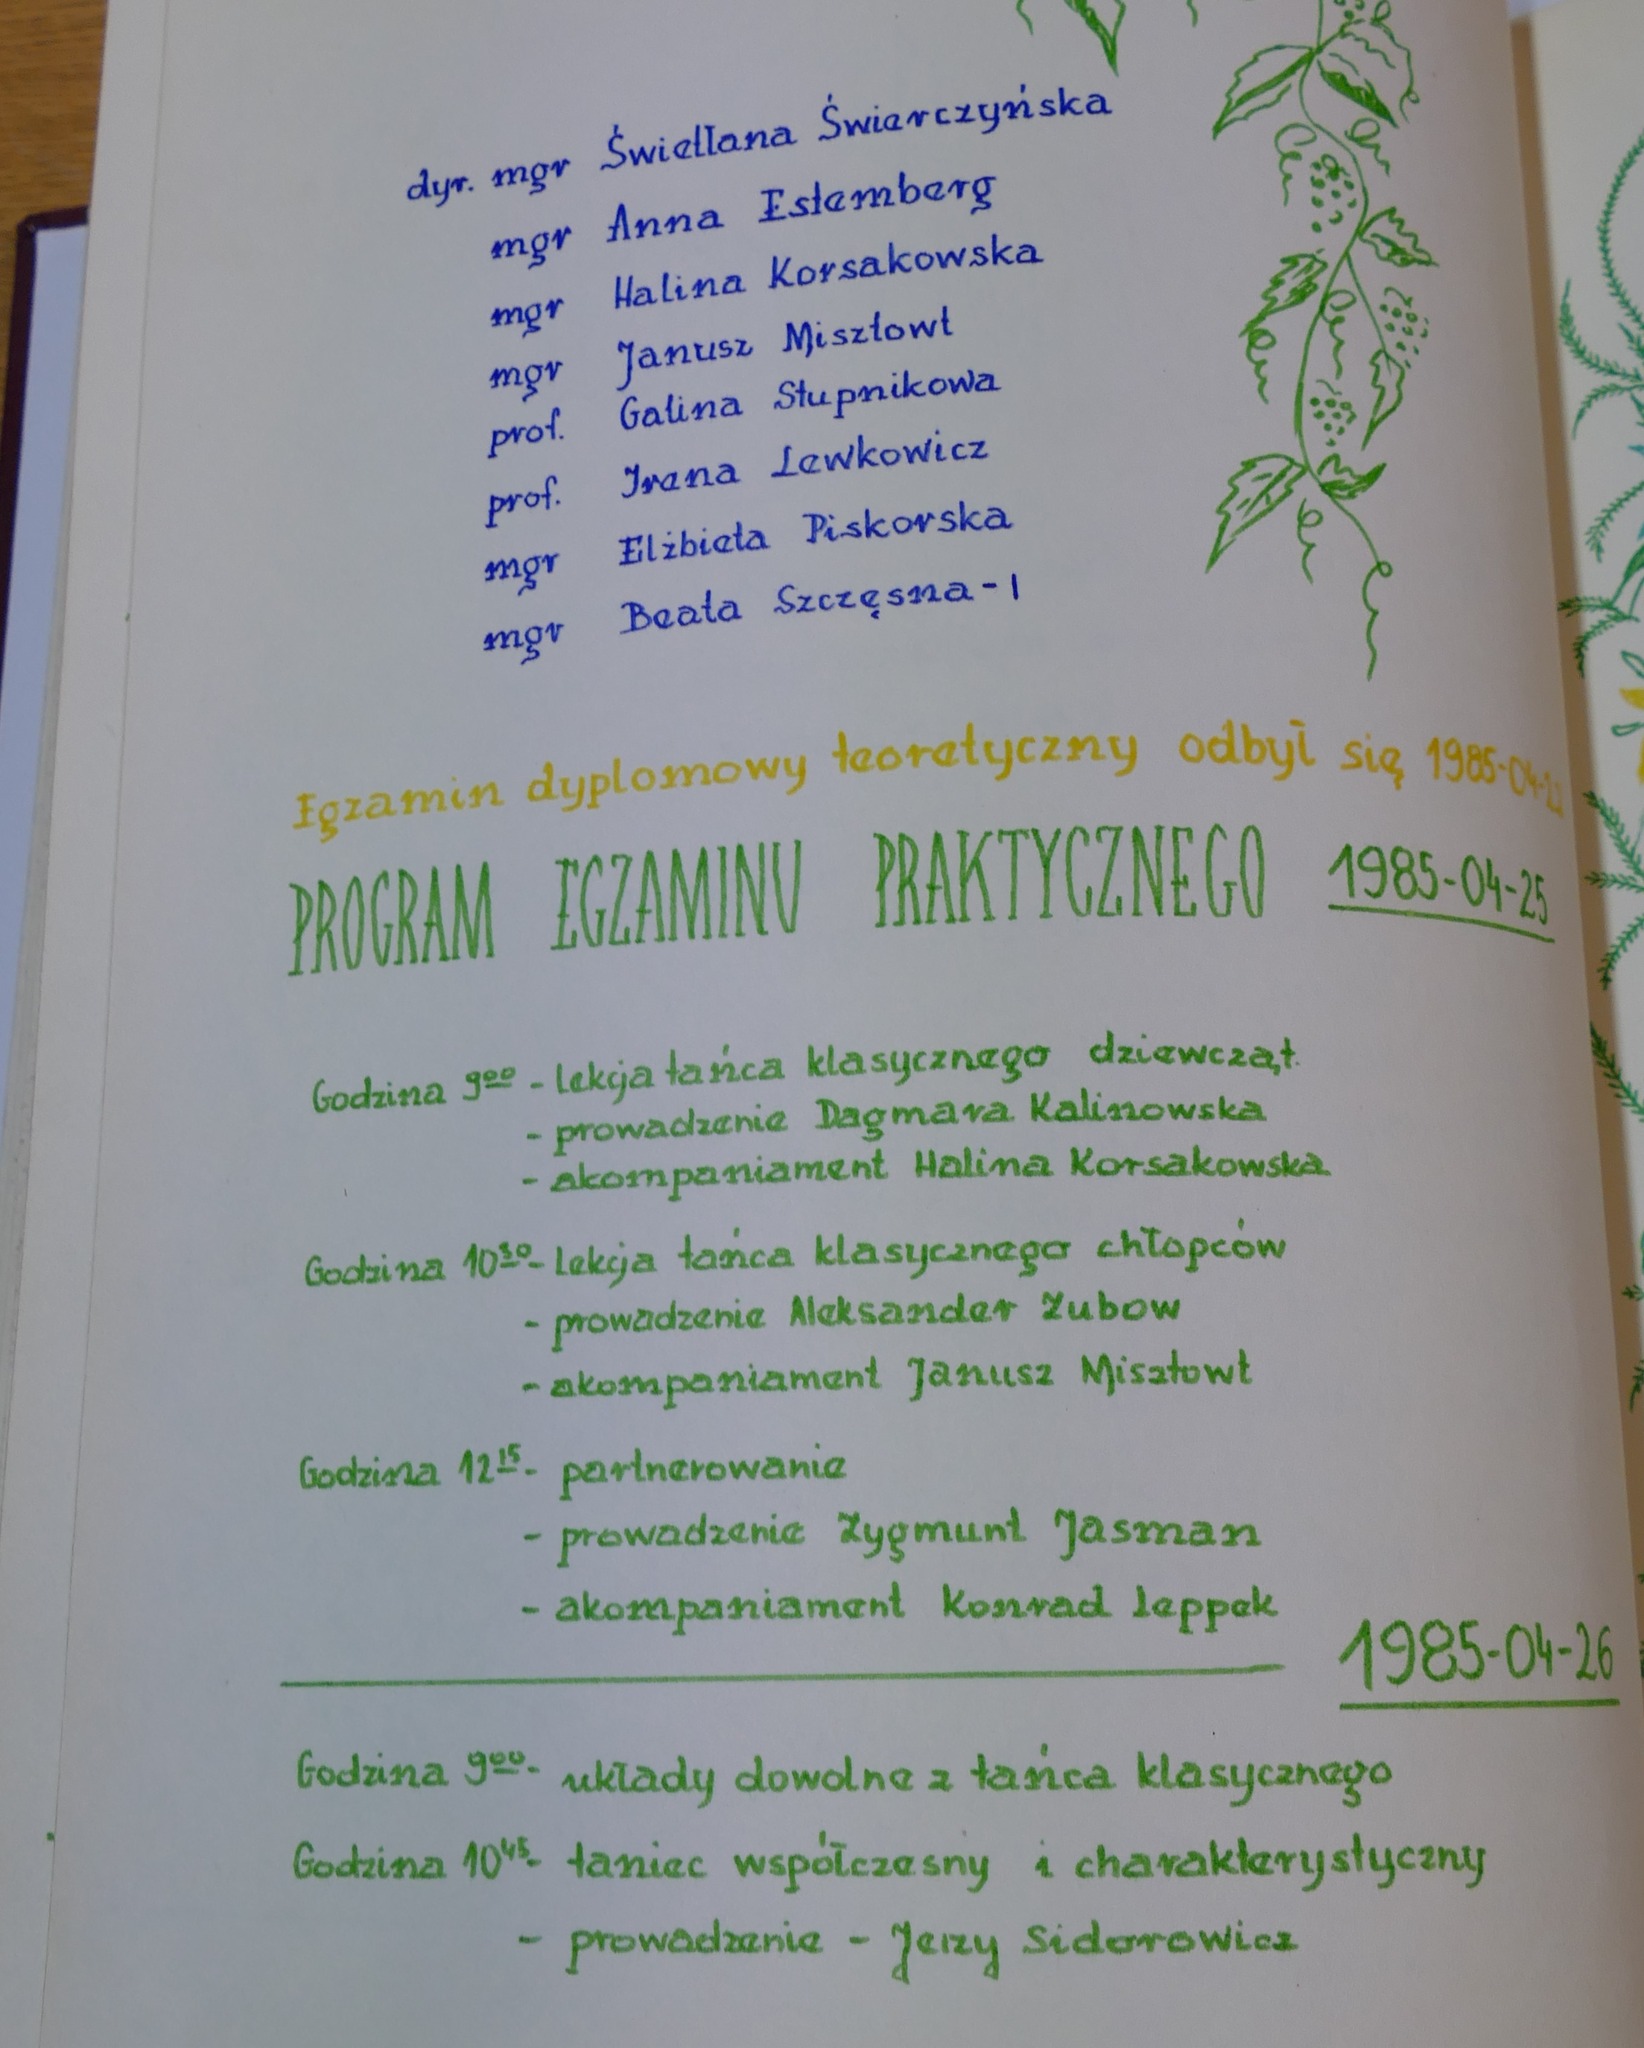 dyr. mgr Świetlana Świerczyńska
mgr Anna Estemberg
mgr Halina Korsakowska
mgr Janusz Misztowt
prof. Galina Stupnikowa
prof. Irena Lewkowicz
mgr Elżbieta Piskorska
mgr Beata Szczęsna - I
Egzamin dyplomowy teoretyczny odbył się
PROGRAM EGZAMINU PRAKTYCZNEGO 1985-04-25
Godzina 9⁰⁰ - lekcja tańca klasycznego dziewcząt.
- prowadzenie Dagmara Kalinowska
- akompaniament Halina Korsakowska
Godzina 10³⁰ - lekcja tańca klasycznego chłopców
- prowadzenie Aleksander Zubow
- akompaniament Janusz Misztowt
Godzina 12¹⁵ - partnerowanie
- prowadzenie Zygmunt Jasman
- akompaniament Konrad Leppek
1985-04-26
Godzina 9⁰⁰ - układy dowolne z tańca klasycznego
Godzina 10⁴⁵ - taniec współczesny i charakterystyczny
- prowadzenie - Jerzy Sidorowicz